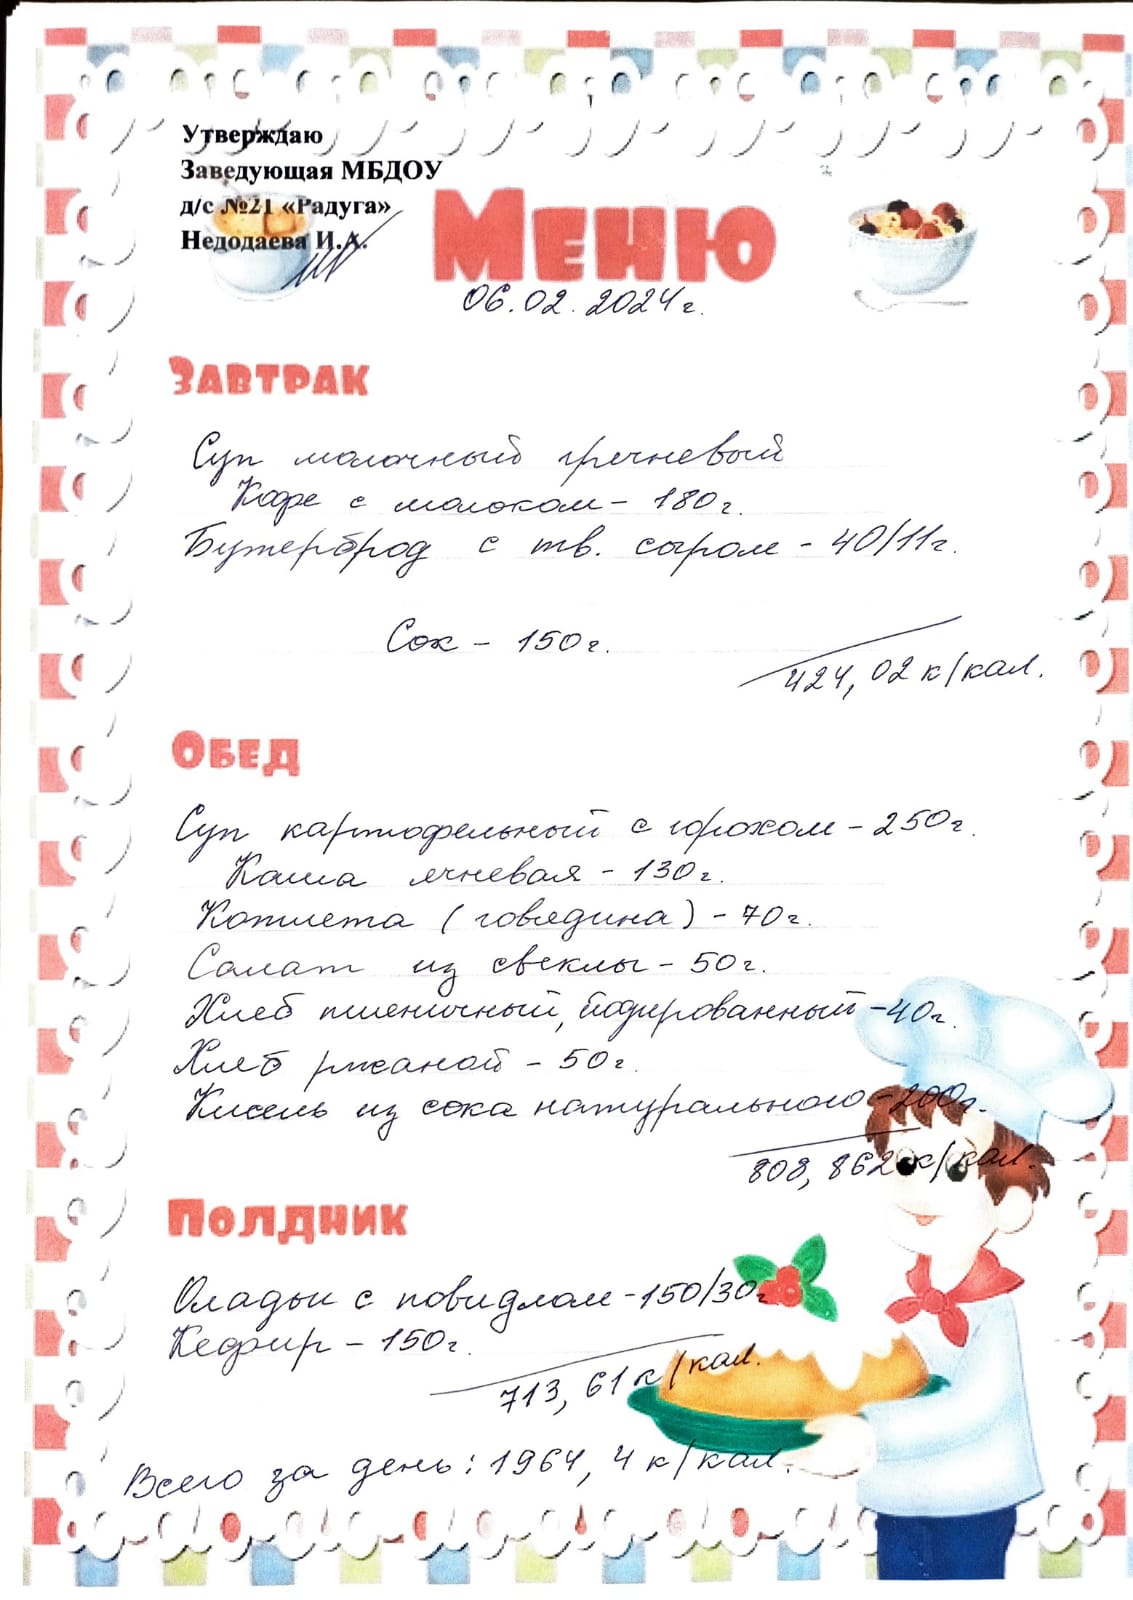 Утверждаю
Заведующая МБДОУ
д/с №21 «Радуга»
Недодаева И.А.
Меню
06.02.2024г.
Завтрак
Суп молочный гречневый
Кофе с молоком - 180г.
Бутерброд с тв. сыром - 40/11г.
Сок - 150г.
424,02 к/кал.
Обед
Суп картофельный с горохом - 250г.
Каша ячневая - 130г.
Котлета (говядина) - 70г.
Салат из свеклы - 50г.
Хлеб пшеничный, йодированный - 40г.
Хлеб ржаной - 50г.
Кисель из сока натурального - 200г.
808,862 к/кал.
Полдник
Оладьи с повидлом - 150/30г
Кефир - 150г.
713,61 к/кал.
Всего за день: 1964,4 к/кал.